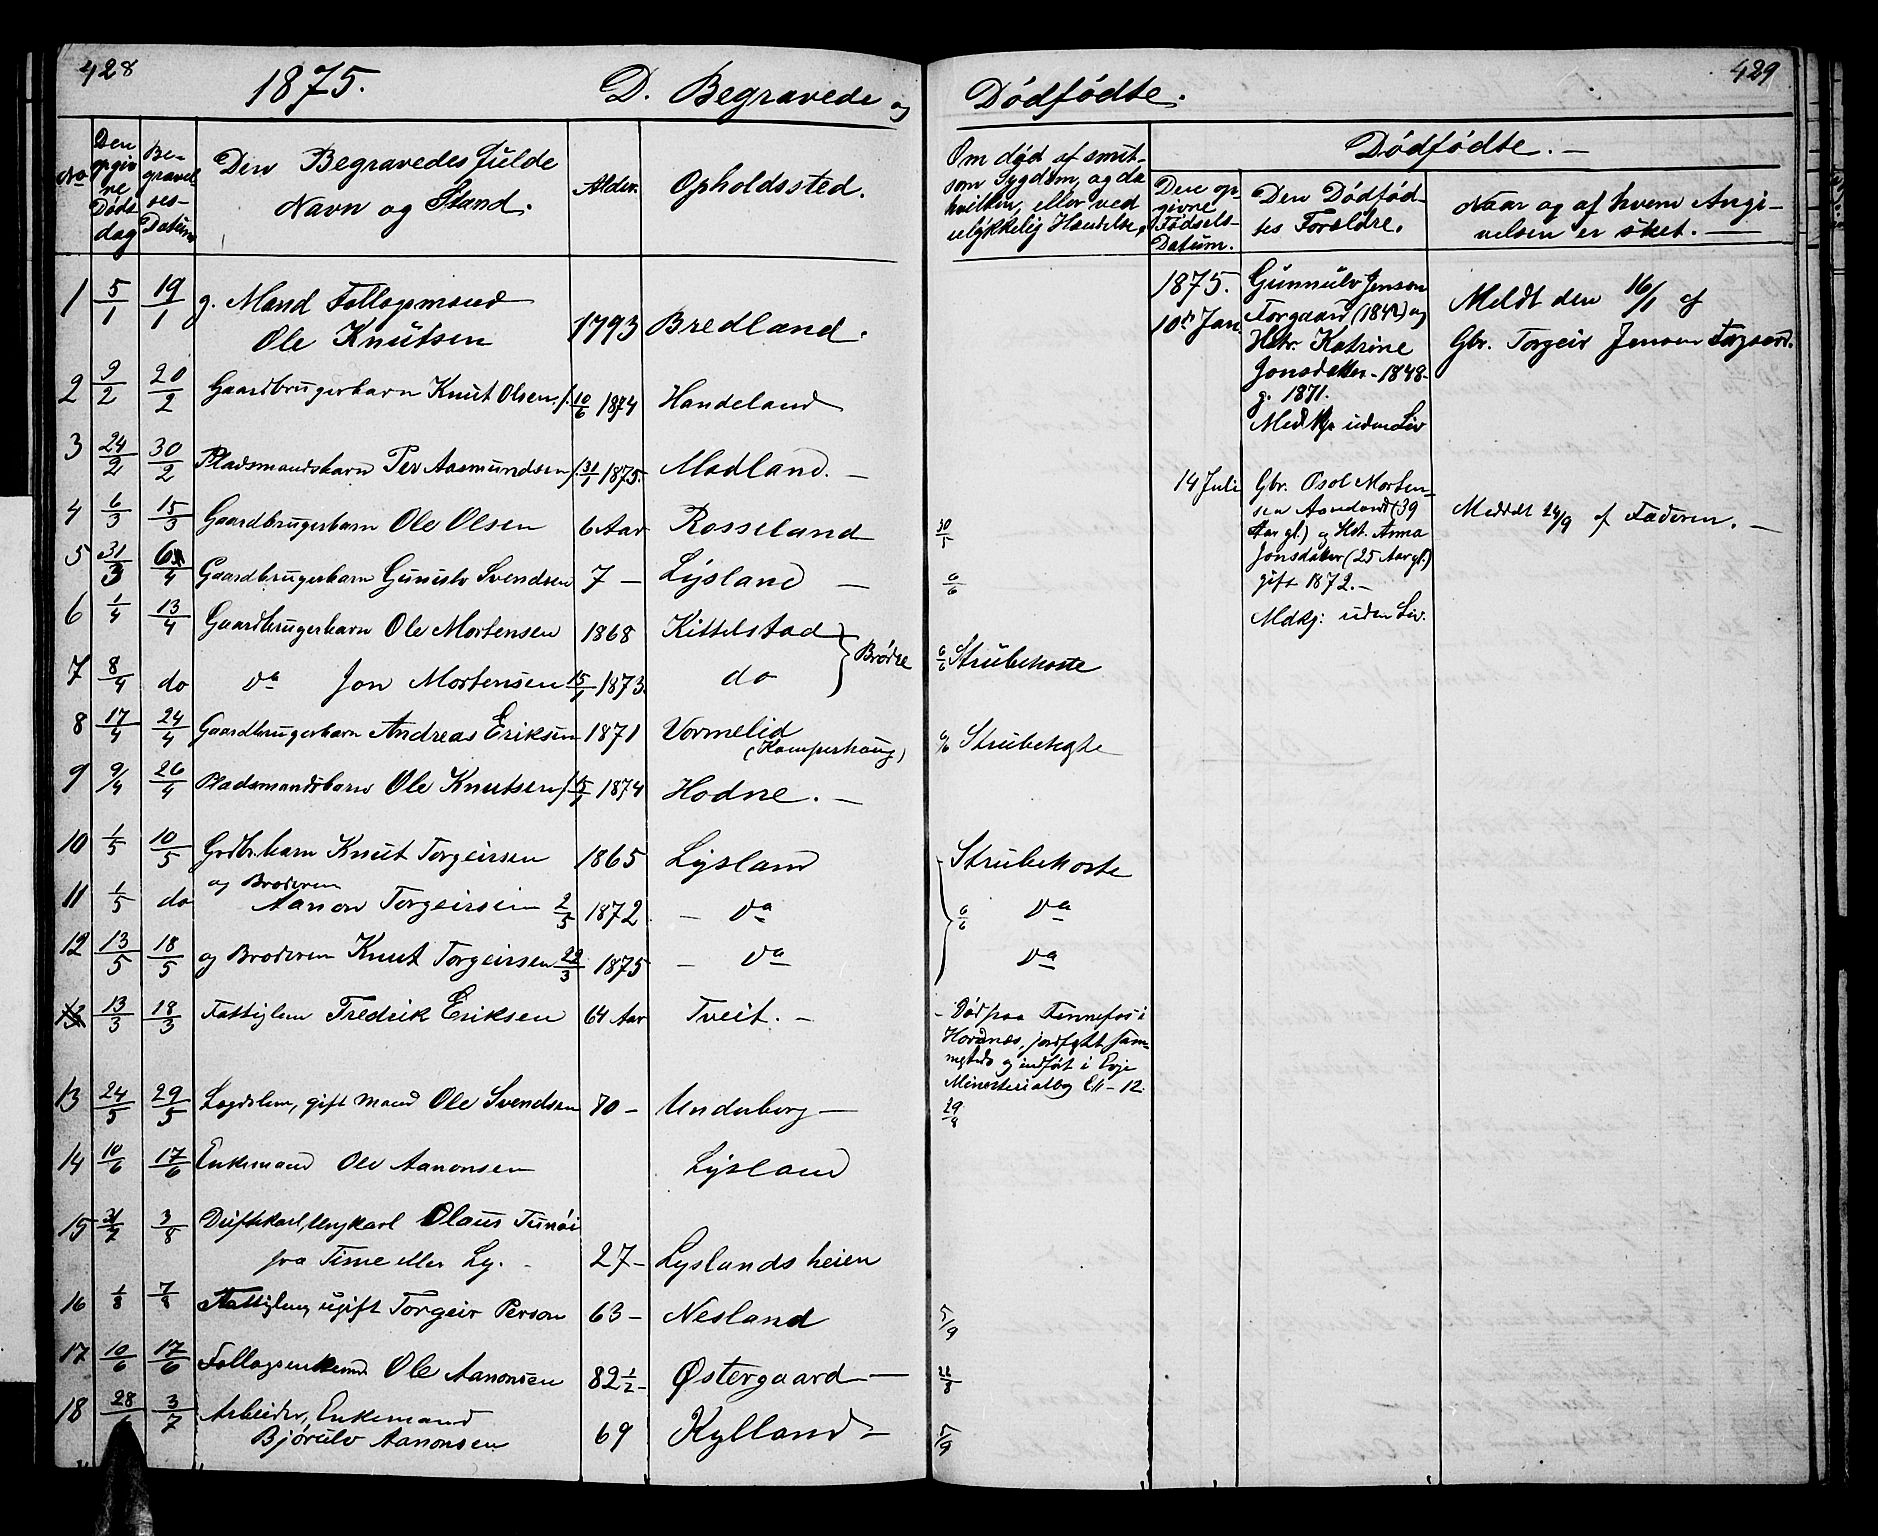 428
1875.
D. Begravede og
Dödfödte.
429
No
Den opgivne Döds dag
Begravelses-Datum
Den Begravedes fulde Navn og Stand.
Alder.
Opholdssted.
Om död af smitsom Sygdom, og da hvilken, eller ved ulykkelig Hændelse.
Dödfödte. —
Den opgivne Födsels-Datum.
Den Dödfödtes Forældre.
Naar og af hvem Angivelsen er sket. —
1 5/1 19/1 g. Mand Follogsmand
Ole Knutsen 1793 Bredland.
2 9/2 20/2 Gaardbrugerbarn Knut Olsen f. 10/6 1874 Handeland
3 24/2 30/2 Pladsmandsbarn Per Aasmundsen f. 31/1 1875. Modland. —
4 6/3 15/3 Gaardbrugerbarn Ole Olsen 6 Aar Rosseland 30/5
5 31/3 6/4 Gaardbrugerbarn Gunulv Svendsen 7 — Lysland — 6/6
6 1/4 13/4 Gaardbrugerbarn Ole Mortensen 1868 Kittelstad
Brödre
7 8/4 do do Jon Mortensen 15/1 1873. do 6/6 Strubehoste
8 17/4 24/4 Gaardbrugerbarn Andreas Eriksen 1871 Vormelid
(Kamperhaug) Strubehoste
9 9/4 26/4 Pladsmandsbarn Ole Knutsen f. 1874 Hodne. —
10 1/5 10/5 Grdbr.barn Knut Torgeirsen 1865 Lysland Strubehoste
11 1/5 do og Broderen
Aanon Torgeirsen 2/5 1872. — do 6/6 do
12 13/5 18/5 og Broderen Knut Torgeirsen 22/3 1875 — do do
13 13/3 18/3 Fattiglem Fredrik Eriksen 64 Aar Tveit. —
- Död paa Fennefos i
Hornnæs, jordfæstet sam-
mesteds og indfört i Evje
Ministerialbog
13 24/5 29/5 Lægdslem, gift Mand Ole Svendsen 70 — Underberg — 29/8
14 10/6 17/6 Enkemand Ole Aanonsen Lysland
15 31/7 3/8 Driftekarl, Ungkarl Olaus Tunöi
fra Time eller Ly. 27 — Lyslandsheien
16 1/8 7/8 Fattiglem, ugift Torgeir Person 63 — Nesland 5/9
17 10/6 17/6 Follogsenkemd Ole Aanonsen 82 1/2 — Østergaard — 22/8
18 28/ 3/7 Arbeider, Enkemand
Björulv Aanonsen 69 Kylland — 5/9
1875.
10de Jan
Gunnulv Jenson
Torgaard (1842) og
Hstr. Katrine
Jonsdatter - 1848-
g. 1871.
Mdkj. uden Liv
Meldt den 16/1 af
Gbr. Torgeir Jenson
14 Juli
Gbr. Osol Morten-
sen Aaneland (39
Aar gl.) og Hst. Anna
Jonsdatter (25 Aar gl.)
gift 1872. -
Mdkj: uden Liv.
Meddt 24/9 af Faderen. —